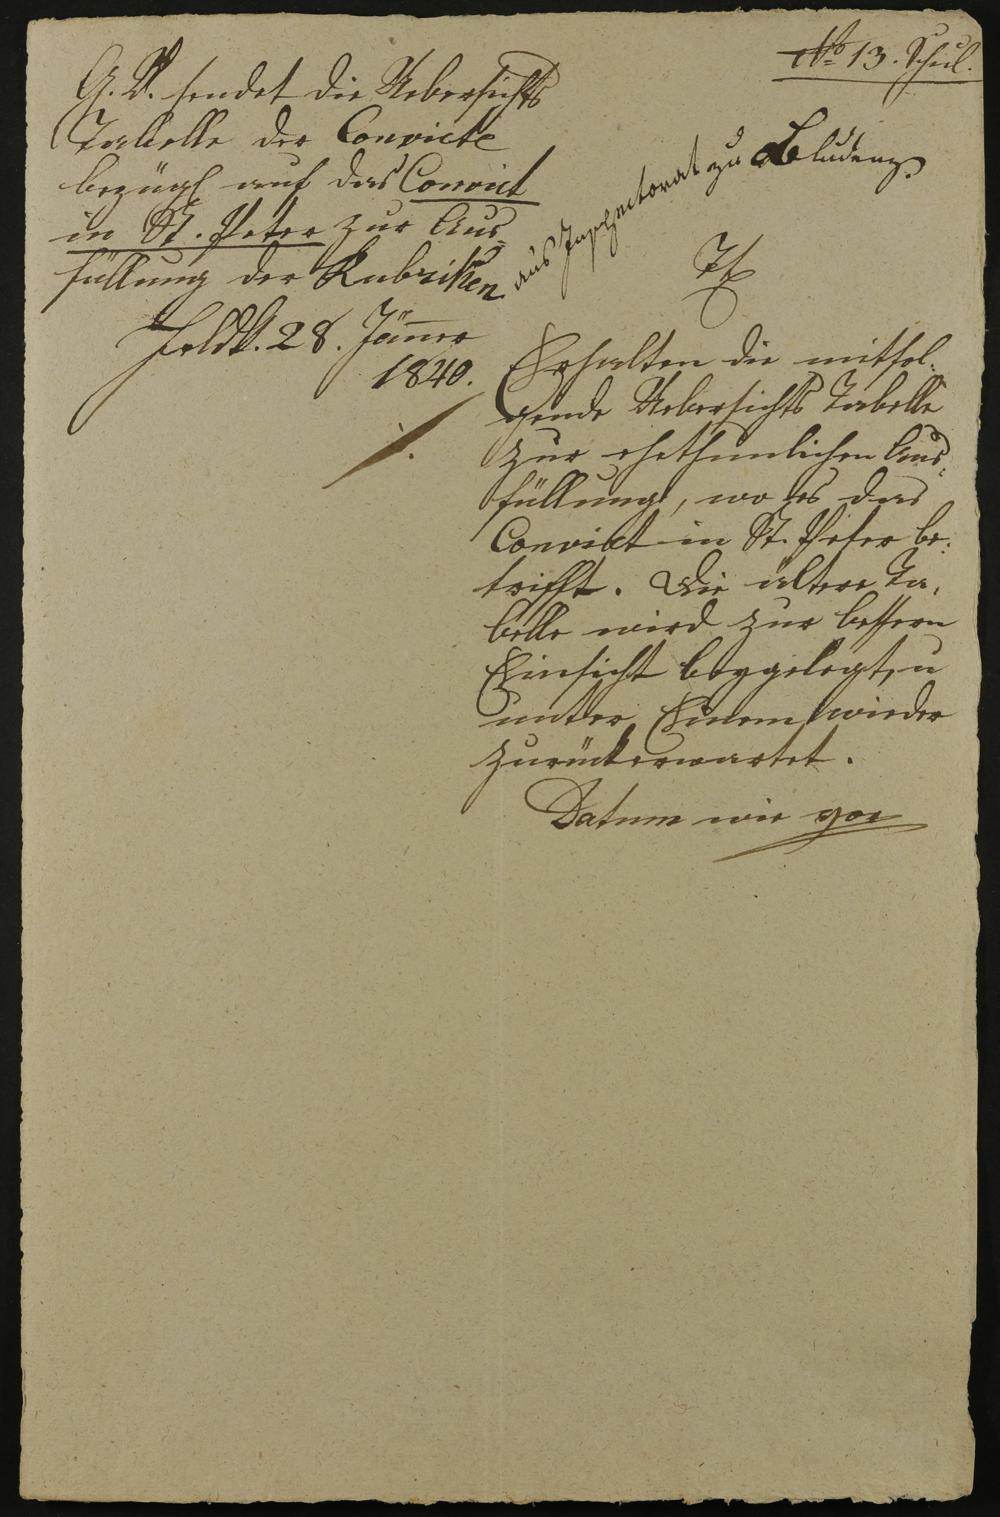 No 13. Schul.
G. V. sendet die Uebersichts
Tabelle der Convicte
bezügl auf das Convict
in St. Peter zur Aus-
füllung der Rubriken
Feldk. 28. Jänner
1840.
ans Inspectorat zu Bludenz.
Erhalten die mitfol-
gende Uebersichts Tabelle
zur ehethunlichen Aus-
füllung, wo es das
Convict in St. Peter be-
trifft. Die ältere Ta-
belle wird zur bessern
Einsicht beygelegt, u
unter Einem wieder
zurückerwartet.
Datum wie vor